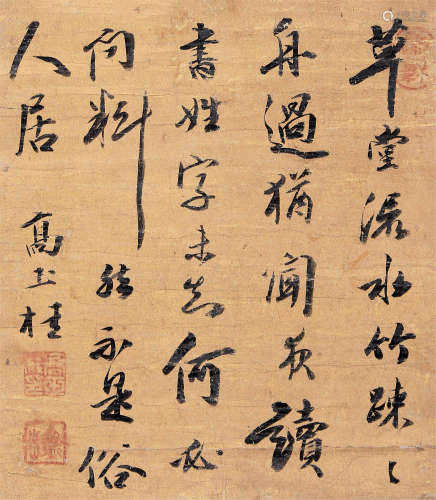 草堂深水竹疎〻
舟過猶聞夜讀
書姓字未知何必
問料然不是俗
人居 高士桂